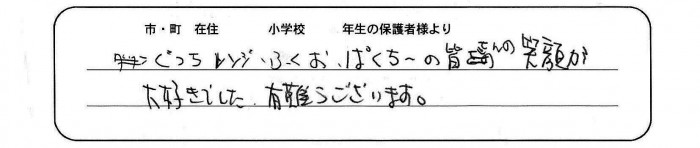 市・町 在住 小学校 年生の保護者様より
ぐっちレンジ・ふくお、ぱくちーの皆さんの笑顔が
大好きでした、有難うございます。